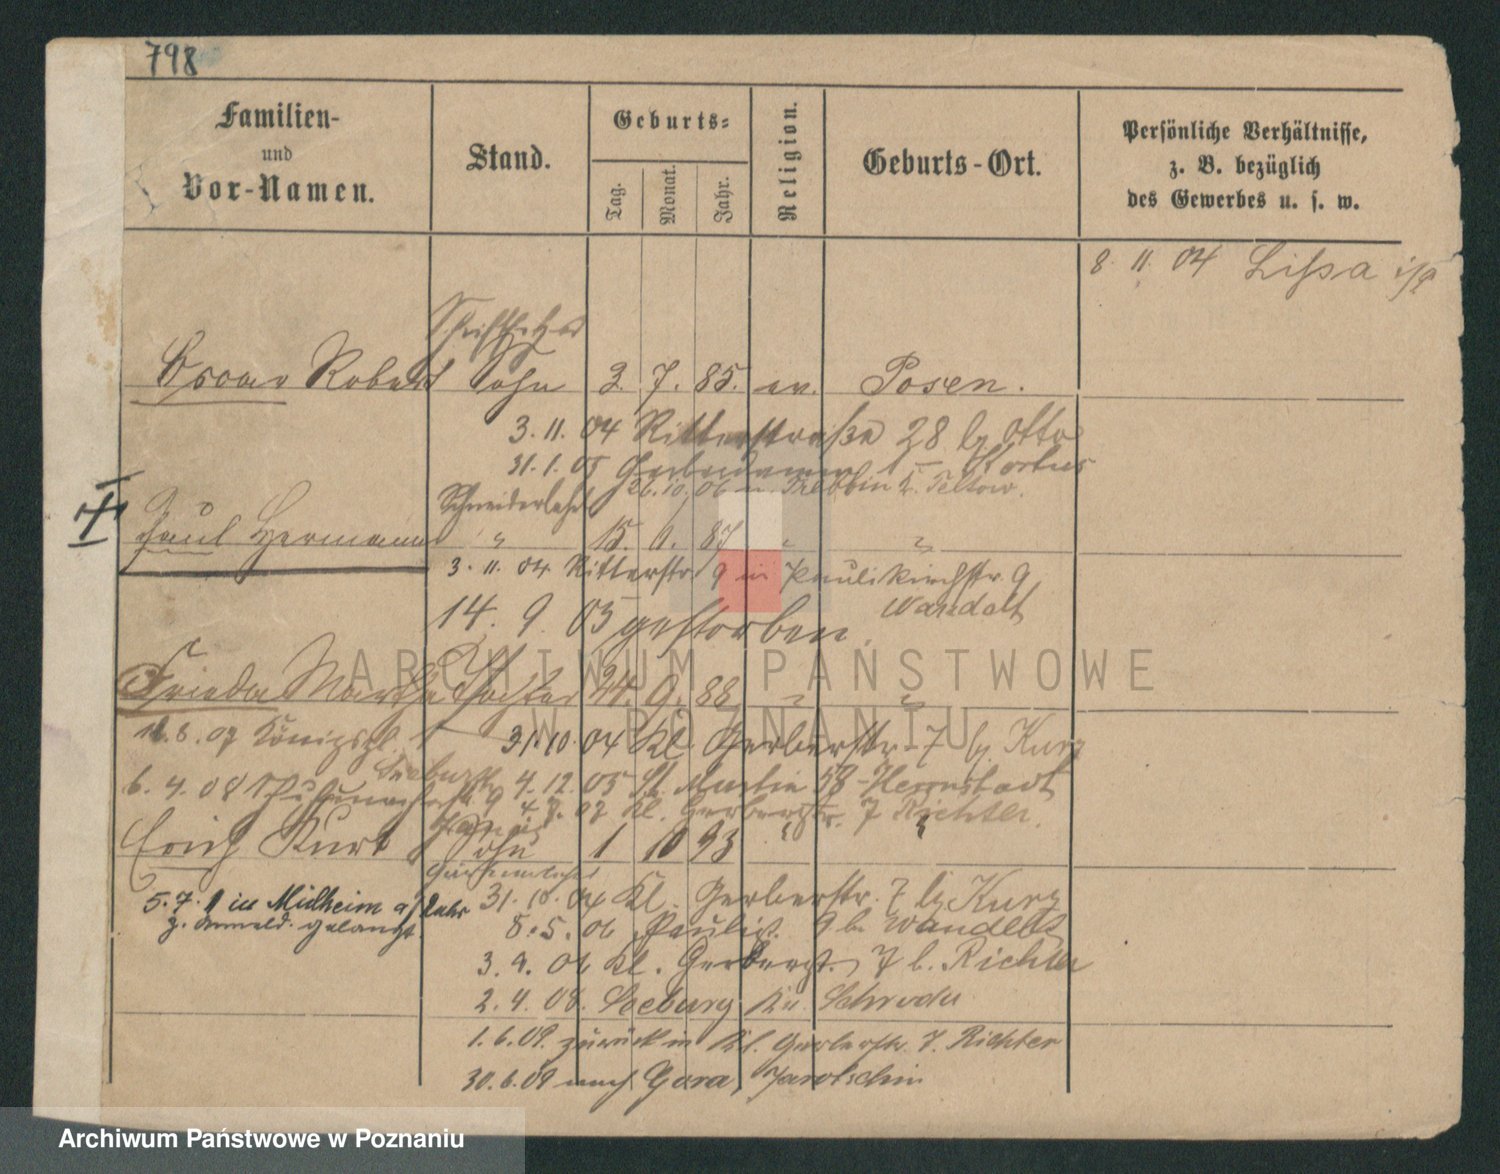 798
Familien-
und
Vor-Namen.
Stand.
Geburts-
Tag.
Monat.
Jahr.
Religion.
Geburts-Ort.
Persönliche Verhältnisse,
z. B. bezüglich
des Gewerbes u. s. w.
8. 11. 04 Lissa i/P
Schriftsetzer
Oscar Robert Sohn 3. 7. 85. ev. Posen.
3. 11. 04 Ritterstraße 28 bj Otto
31. 1. 05
26. 10. 06 n. Trebbin Kr. Teltow.
Schneiderlehrl
Paul Hermann " 15. 87 " "
3. 11. 04 Ritterstr 9 in Paulikirchstr. 9
Wandelt
14. 9. 05 gestorben
ARCHIWUM PAŃSTWOWE
W POZNANIU
Frieda Martha Tochter 24. 9. 88 " "
31. 10. 04 Kl. Gerberstr. 7 bj Kurz
8. 07 Königspl.
4. 12. 05 St. Martin 58 Herrnstadt
6. 4. 08 9
07 Kl. Gerberstr. 7 Richter.
Erich Kurt Sohn 1 10 93 " "
31. 10. 04 Kl. Gerberstr. 7 bj Kurz
5. 7. in Mülheim a/Ruhr
z. Anmeld. gelangt.
8. 5. 06 Paulist. 9 b. Wandelt
3. 9. 06 Kl. Gerberst. 7 b. Richter
2. 4. 08. Seeburg Kr. Schroda
1. 6. 09. zurück in Kl. Gerberstr. 7. Richter
30. 6. 09 nach Gora, Jarotschin
Archiwum Państwowe w Poznaniu